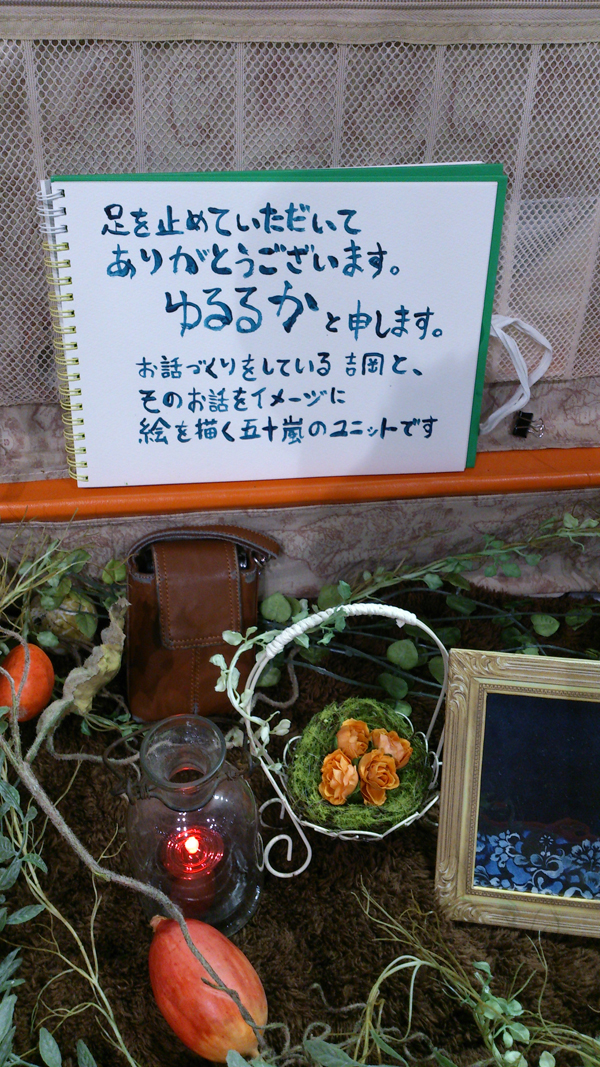 足を止めていただいて
ありがとうございます。
ゆるるか と申します。
お話づくりをしている 吉岡と、
そのお話をイメージに
絵を描く五十嵐のユニットです